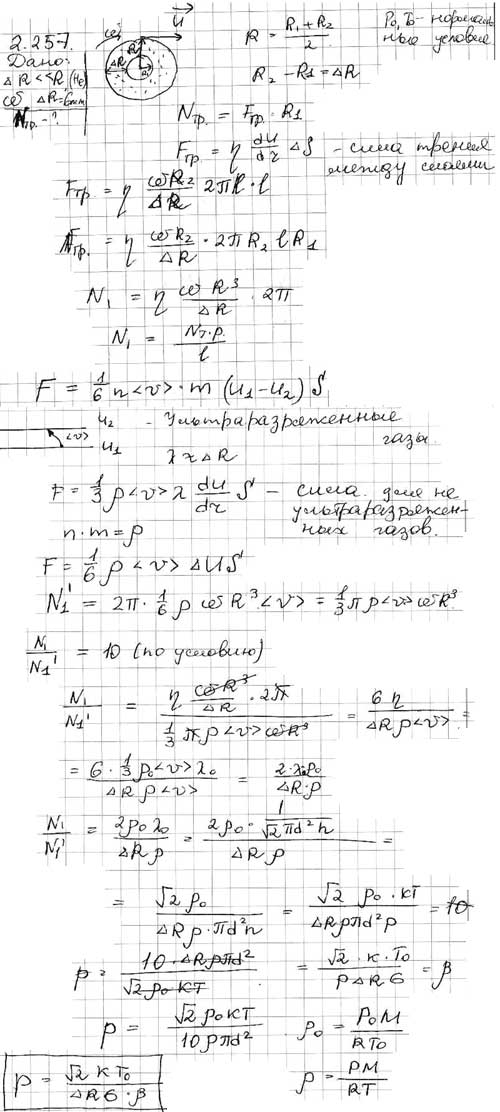 2.257.
Дано:
ΔR << R (He)
ω ΔR = 6 mm
Nтр. - ?
ω
u
R
ΔR
R = (R₁ + R₂)/2
P₀, T₀ - нормальные условия
R₂ - R₁ = ΔR
Nтр. = Fтр. · R₁
Fтр. = η du/dr ΔS - сила трения
между слоями
Fтр. = η ωR₂/ΔR 2πR · l
Nтр. = η ωR₂/ΔR · 2πR₂ l R₁
N₁ = η ωR³/ΔR · 2π
N₁ = Nт.р./l
F = 1/6 n<v> · m (u₁ - u₂) S
u₂ - Ультраразряженные
<v> газы.
u₁ λ ≈ ΔR
F = 1/3 ρ<v> λ du/dr S - сила для не
ультраразряжен-
ных газов.
n · m = ρ
F = 1/6 ρ <v> ΔU S
N₁' = 2π · 1/6 ρ ωR³ · <v> = 1/3 π ρ <v> ωR³
N₁/N₁' = 10 (по условию)
N₁/N₁' = (η ωR³/ΔR · 2π)/(1/3 π ρ <v> ωR³) = 6η/(ΔR ρ <v>) =
= (6 · 1/3 ρ₀ <v> λ₀)/(ΔR ρ <v>) = (2 · λ₀ρ₀)/(ΔR · ρ)
N₁/N₁' = 2ρ₀λ₀/(ΔR ρ) = (2ρ₀ · 1/(√2 πd²n))/(ΔR ρ) =
= √2 ρ₀/(ΔR ρ · πd²n) = (√2 ρ₀ · kT)/(ΔR ρ πd² p) = 10
p = (10 · ΔR ρ πd²)/(√2 ρ₀ kT) = (√2 · k · T₀)/(p ΔR σ) = β
p = √2 ρ₀ kT/(10 ρ πd²) ρ₀ = P₀M/(RT₀)
p = √2 k T₀/(ΔR σ · β) ρ = PM/(RT)